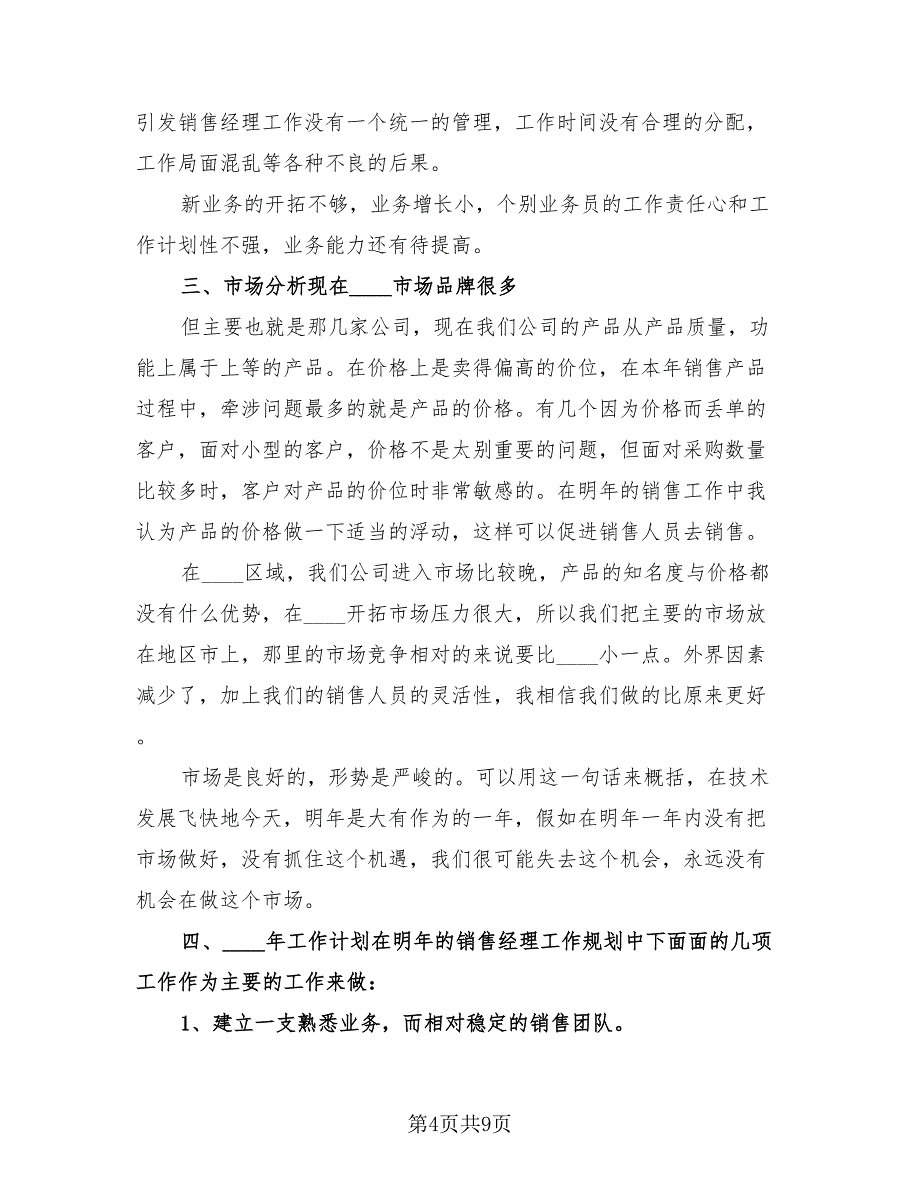 引发销售经理工作没有一个统一的管理，工作时间没有合理的分配，
工作局面混乱等各种不良的后果。
新业务的开拓不够，业务增长小，个别业务员的工作责任心和工
作计划性不强，业务能力还有待提高。
三、市场分析现在____市场品牌很多
但主要也就是那几家公司，现在我们公司的产品从产品质量，功
能上属于上等的产品。在价格上是卖得偏高的价位，在本年销售产品
过程中，牵涉问题最多的就是产品的价格。有几个因为价格而丢单的
客户，面对小型的客户，价格不是太别重要的问题，但面对采购数量
比较多时，客户对产品的价位时非常敏感的。在明年的销售工作中我
认为产品的价格做一下适当的浮动，这样可以促进销售人员去销售。
在____区域，我们公司进入市场比较晚，产品的知名度与价格都
没有什么优势，在____开拓市场压力很大，所以我们把主要的市场放
在地区市上，那里的市场竞争相对的来说要比____小一点。外界因素
减少了，加上我们的销售人员的灵活性，我相信我们做的比原来更好
。
市场是良好的，形势是严峻的。可以用这一句话来概括，在技术
发展飞快地今天，明年是大有作为的一年，假如在明年一年内没有把
市场做好，没有抓住这个机遇，我们很可能失去这个机会，永远没有
机会在做这个市场。
四、____年工作计划在明年的销售经理工作规划中下面面的几项
工作作为主要的工作来做：
1、建立一支熟悉业务，而相对稳定的销售团队。
第4页共9页